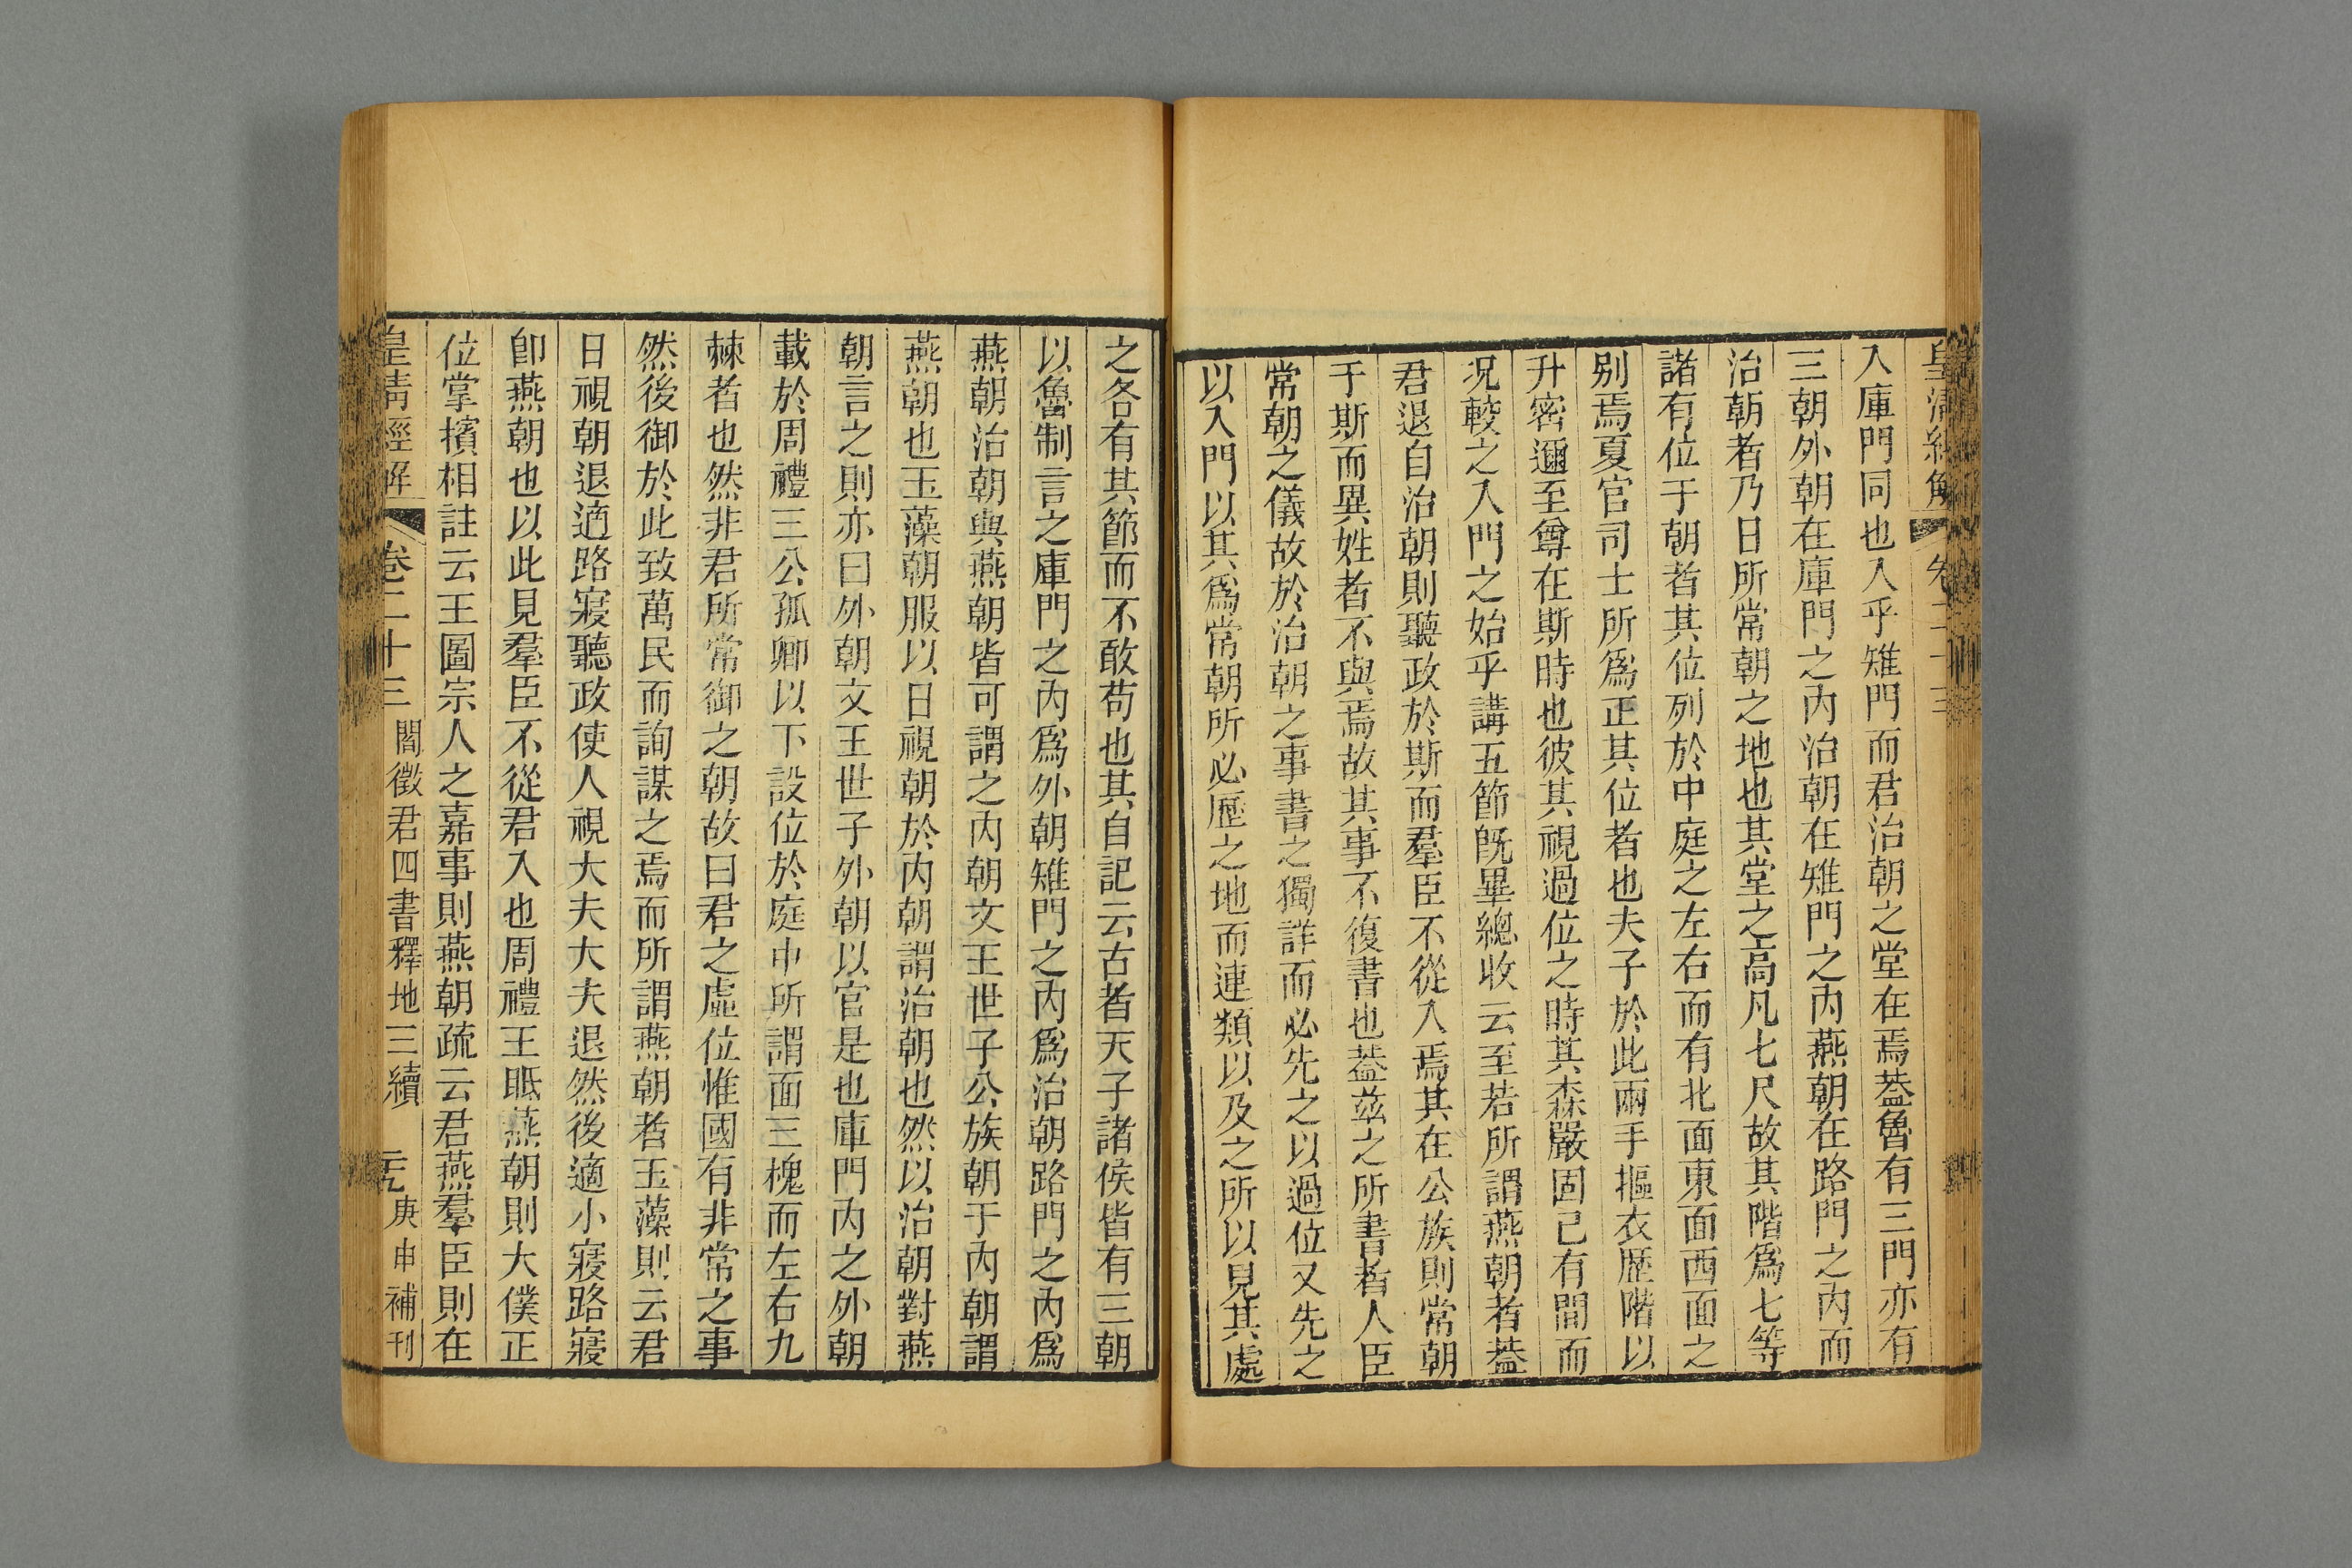 皇清經解 卷二十三
入庫門同也入乎雉門而君治朝之堂在焉葢魯有三門亦有
三朝外朝在庫門之內治朝在雉門之內燕朝在路門之內而
治朝者乃日所常朝之地也其堂之高凡七尺故其階爲七等
諸有位于朝者其位列於中庭之左右而有北面東面西面之
别焉夏官司士所爲正其位者也夫子於此兩手摳衣歷階以
升密邇至尊在斯時也彼其視過位之時其森嚴固已有間而
况較之入門之始乎講五節既畢總收云至若所謂燕朝者葢
君退自治朝則聽政於斯而羣臣不從入焉其在公族則常朝
于斯而異姓者不與焉故其事不復書也葢兹之所書者人臣
常朝之儀故於治朝之事書之獨詳而必先之以過位又先之
以入門以其爲常朝所必歷之地而連類以及之所以見其處
之各有其節而不敢苟也其自記云古者天子諸侯皆有三朝
以魯制言之庫門之內爲外朝雉門之內爲治朝路門之內爲
燕朝治朝與燕朝皆可謂之內朝文王世子公族朝于內朝謂
燕朝也玉藻朝服以日視朝於內朝謂治朝也然以治朝對燕
朝言之則亦曰外朝文王世子外朝以官是也庫門內之外朝
載於周禮三公孤卿以下設位於庭中所謂面三槐而左右九
棘者也然非君所常御之朝故曰君之虛位惟國有非常之事
然後御於此致萬民而詢謀之焉而所謂燕朝者玉藻則云君
日視朝退適路寢聽政使人視大夫大夫退然後適小寢路寢
卽燕朝也以此見羣臣不從君入也周禮王眡燕朝則大僕正
位掌擯相註云王圖宗人之嘉事則燕朝疏云君燕羣臣則在
皇清經解 卷二十三 閻徵君四書釋地三續 三元 庚申補刊